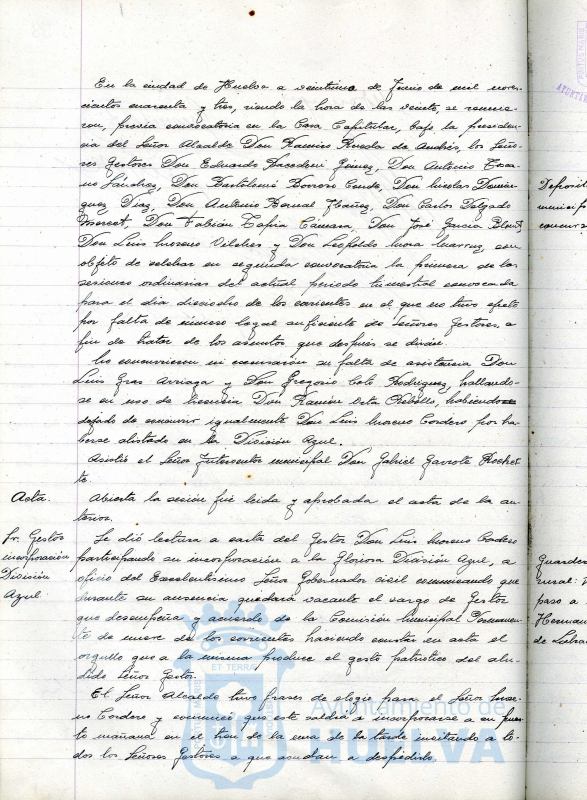 En la ciudad de Huelva a veintiuno de Junio de mil nove-
cientos cuarenta y tres, siendo la hora de las veinte, se reunie-
ron, previa convocatoria en la Casa Capitular, bajo la presiden-
cia del Señor Alcalde Don Ramiro de Andrés, los Seño-
res Gestores Don Eduardo Gómez, Don Antonio
Sánchez, Don Bartolomé Borrero Conde, Don Nicolás Domín-
guez Díaz, Don Aurelio Bernal Ibáñez, Don Carlos Delgado
Don Fabián Tapia Cámara, Don José García
Don Luis Moreno Vilches y Don Leopoldo Mora con
objeto de celebrar en segunda convocatoria la primera de las
sesiones ordinarias del actual periodo trimestral convocada
para el día dieciocho de los corrientes en el que no tuvo efecto
por falta de número legal suficiente de Señores Gestores, a
fin de tratar de los asuntos que después se dirán.
No concurrieron ni excusaron su falta de asistencia Don
Luis Arriaga y Don Gregorio Rodríguez, hallando-
se en uso de licencia Don Ramón Rebollo, habiendo
dejado de concurrir igualmente Don Luis Moreno Cordero por ha-
berse alistado en la División Azul.
Asistió el Señor Interventor municipal Don Gabriel Garrote
te.
Acta. Abierta la sesión fue leida y aprobada el acta de la an-
terior.
Sr. Gestor incorporación División Azul.
Se dió lectura a carta del Gestor Don Luis Moreno Cordero
participando su incorporación a la Gloriosa División Azul, a
oficio del Excelentísimo Señor Gobernador civil comunicando que
durante su ausencia quedará vacante el cargo de Gestor
que desempeña y acuerdo de la Comisión Municipal Permanen-
te de nueve de los corrientes haciendo constar en acta el
orgullo que a la misma produce el gesto patriótico del alu-
dido Señor Gestor.
El Señor Alcalde tuvo frases de elogio para el Señor More-
no Cordero y anunció que este saldrá a incorporarse a su pues-
to mañana en el tren de la una de la tarde invitando a to-
dos los Señores Gestores a que acudan a despedirlo.
Deposit
municip
concurs
Guarder
rural:
paso a
Herman
de Labra
ET TERRA
Ayuntamiento de
HUELVA